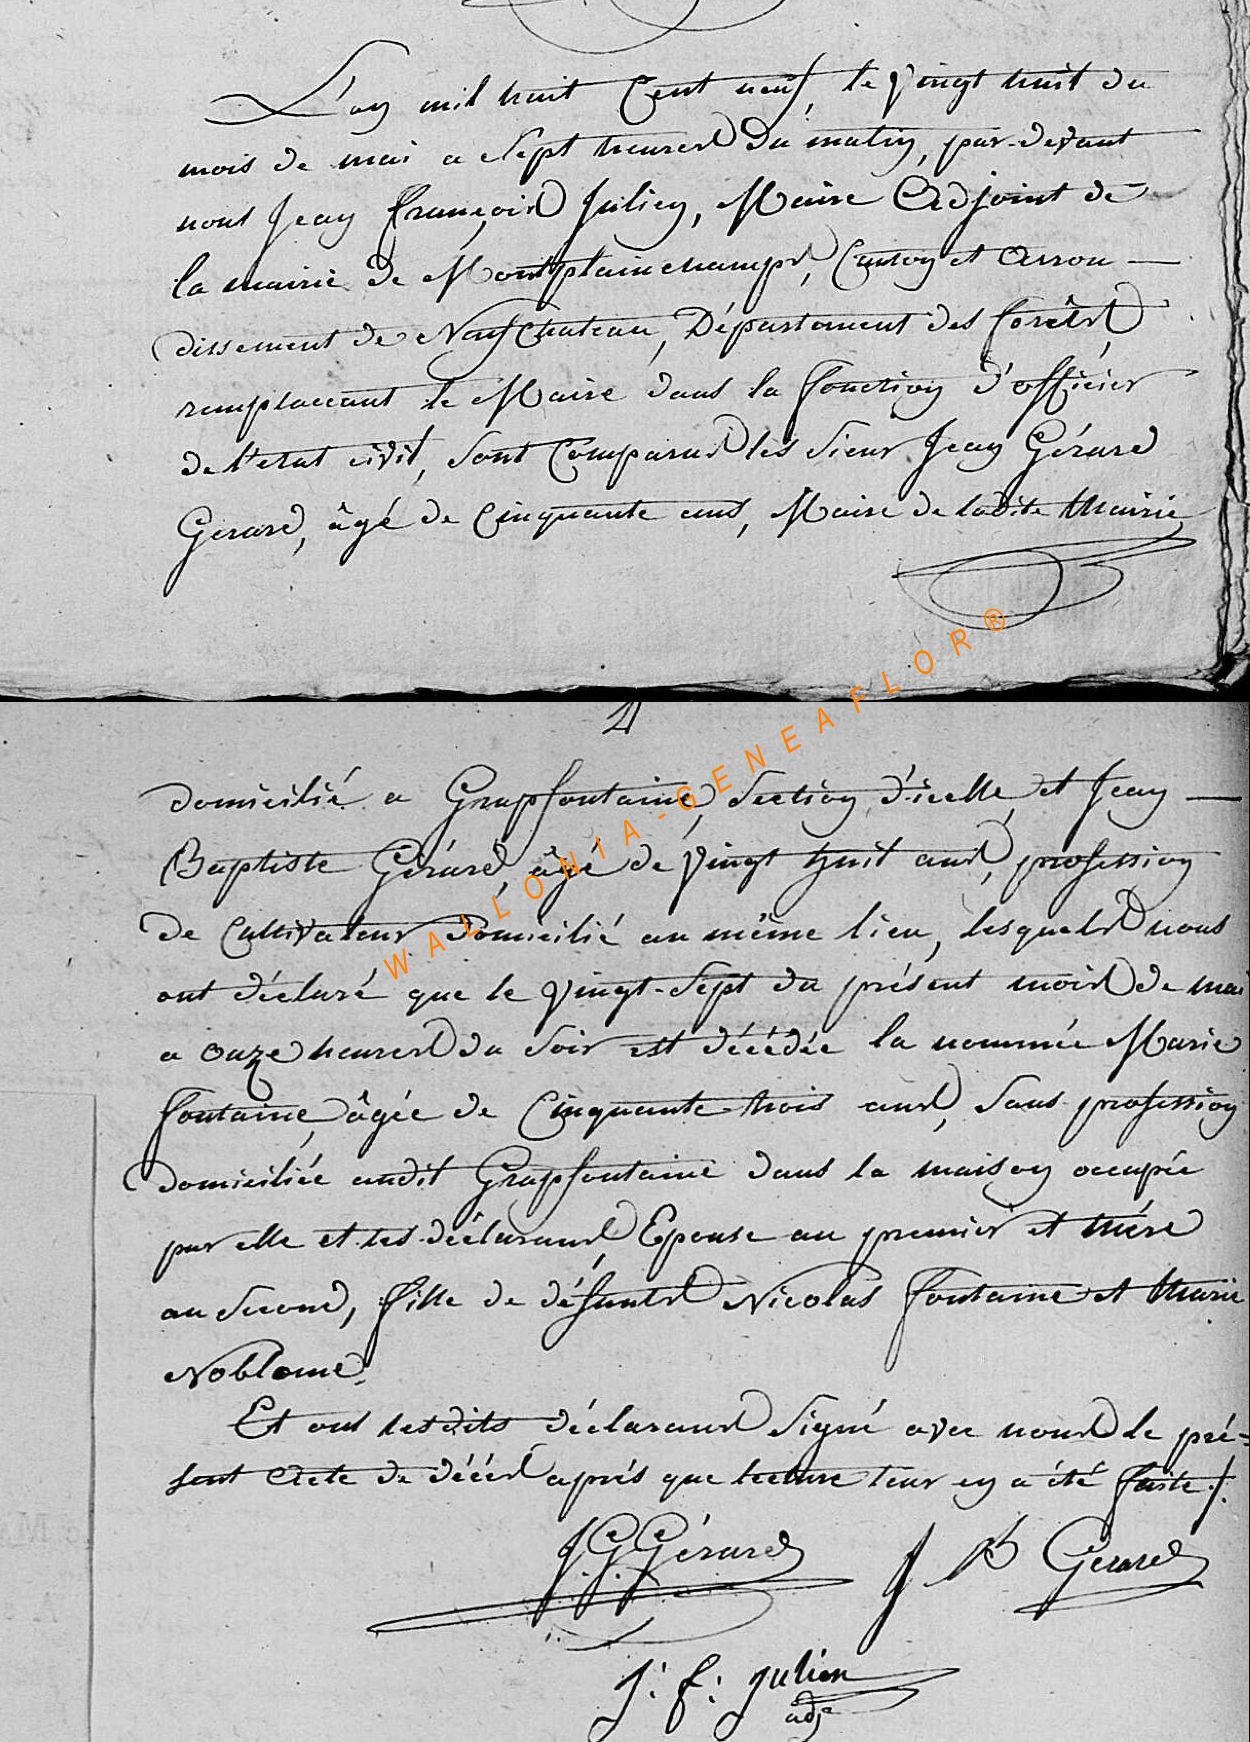 L'an mil huit Cent neuf, le vingt huit du
mois de mai a Sept heures du matin, par-devant
nous Jean françois Julien, Maire Adjoint de
la mairie de Montplainchamps, Canton et Arron
dissement de Neufchateau, Département des forêts,
remplaceant le Maire dans la fonction d'officier
de l'etat civil, Sont Comparus les Sieur Jean Gérard
Gerard, âgé de Cinquante ans, Maire de ladite Mairie
domicilié a Grapfontaine, Section d'icelle, et Jean
Baptiste Gérard, âgé de vingt huit ans, profession
de Cultivateur Domicilié au même lieu, lesquels nous
ont déclaré que le vingt-Sept du présent mois de mai
a onze heures du Soir est décédée la nommée Marie
fontaine, âgée de Cinquante trois ans, Sans profession
domiciliée audit Grapfontaine dans la maison occupée
par elle et les déclarans, Epouse au premier et Mére
au Second, fille de défunts Nicolas fontaine et Marie
Noblome.
Et ont lesdits déclarans Signé avec nous le pré-
sent Acte de décés aprés que lecture leur en a été faite ./.
J. G. Gérard J B Gerard
J: f: Julien
adj
WALLONIA-GENEAFLOR®